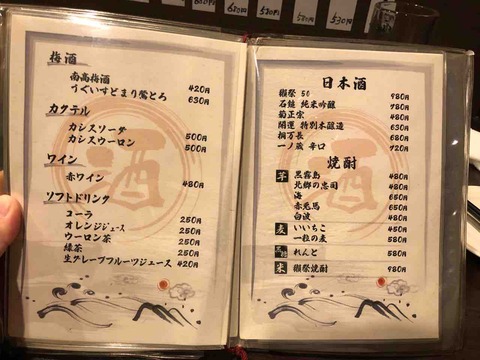 680円
580円
530円
580円
530円
梅酒
南高梅酒 420円
うぐいすどまり鶯とろ 630円
カクテル
カシスソーダ 500円
カシスウーロン 500円
ワイン
赤ワイン 480円
ソフトドリンク
コーラ 250円
オレンジジュース 250円
ウーロン茶 250円
緑茶 250円
生グレープフルーツジュース 420円
酒
日本酒
獺祭 50 980円
石鎚 純米吟醸 980円
菊正宗 480円
開運 特別本醸造 630円
桝万長 680円
一ノ蔵 辛口 720円
焼酎
芋 黒霧島 480円
北郷の忠司 480円
海 550円
赤兎馬 550円
白波 480円
麦 いいちこ 450円
一粒の麦 580円
黒糖 れんと 580円
米 獺祭焼酎 980円
酒